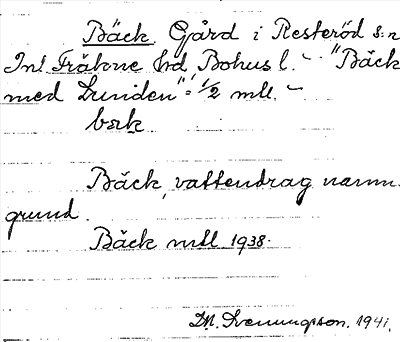 Bäck Gård i Resteröd s:n
Inl. Fräkne hd Bohus l. – "Bäck
med Lunden" = 1/2 mtl. –
bɛk
Bäck, vattendrag namn-
grund.
Bäck mtl 1938.
M. Svenungson. 1941.